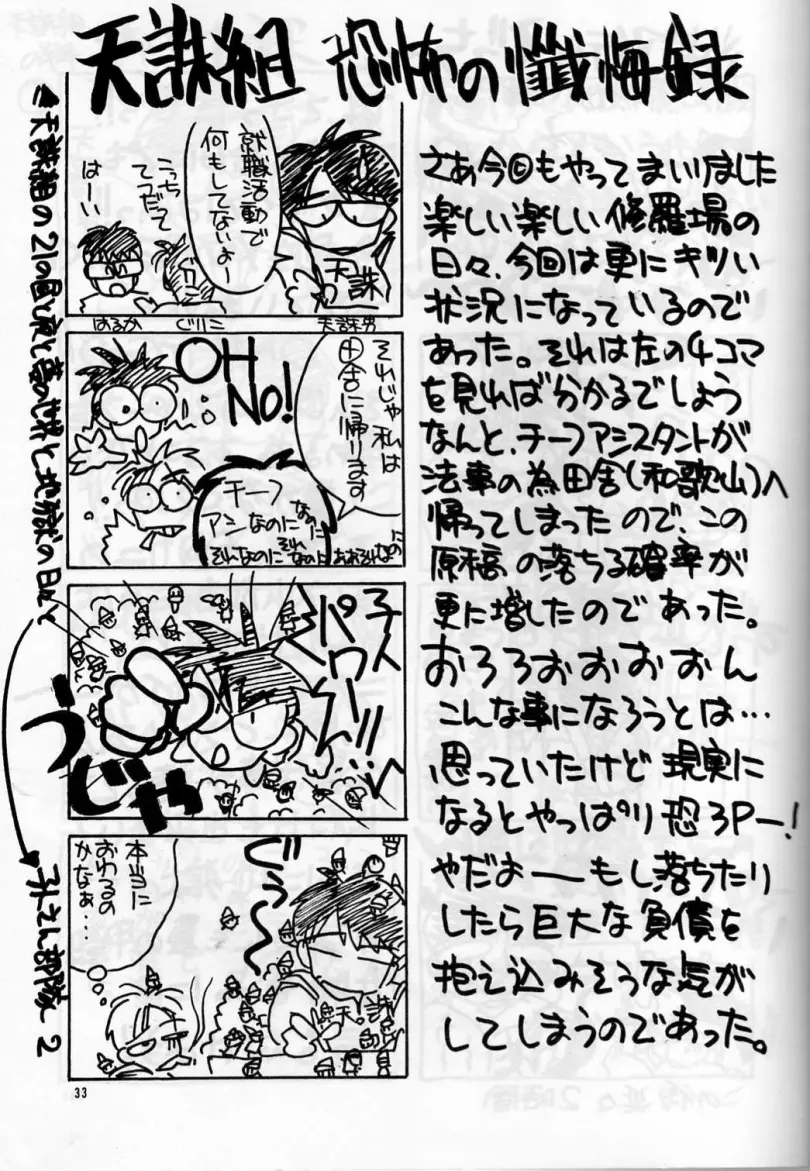 天誅組 恐怖の懺悔録
さあ今回もやってまいりました
楽しい楽しい修羅場の
日々、今回は更にキツい
状況になっているので
あった。それは左の4コマ
を見れば分かるでしょう
なんと、チーフアシスタントが
法事の為田舎(和歌山)へ
帰ってしまったので、この
原稿の落ちる確率が
更に増したのであった。
おろろおおおおん
こんな事になろうとは…
思っていたけど現実に
なるとやっぱり恐ろPー!
やだよーーもし落ちたり
したら巨大な負債を
抱え込みそうな気が
してしまうのであった。
就職活動で
何もしてないよー
こっち
てつだって
はーい
天誅
はるか
ぐりこ
天誅男
それじゃ私は
田舎に帰ります
OH
NO!
チーフ
アシなのに
なのに
そんなのに
それなのに
おおそれなのに
チ
パワー!!
うじゃ
ぐぅ〜〜
本当に
おわるの
かなぁ…
天誅
天誅組の21の昼と夜と
地獄の日々
部隊 2
33